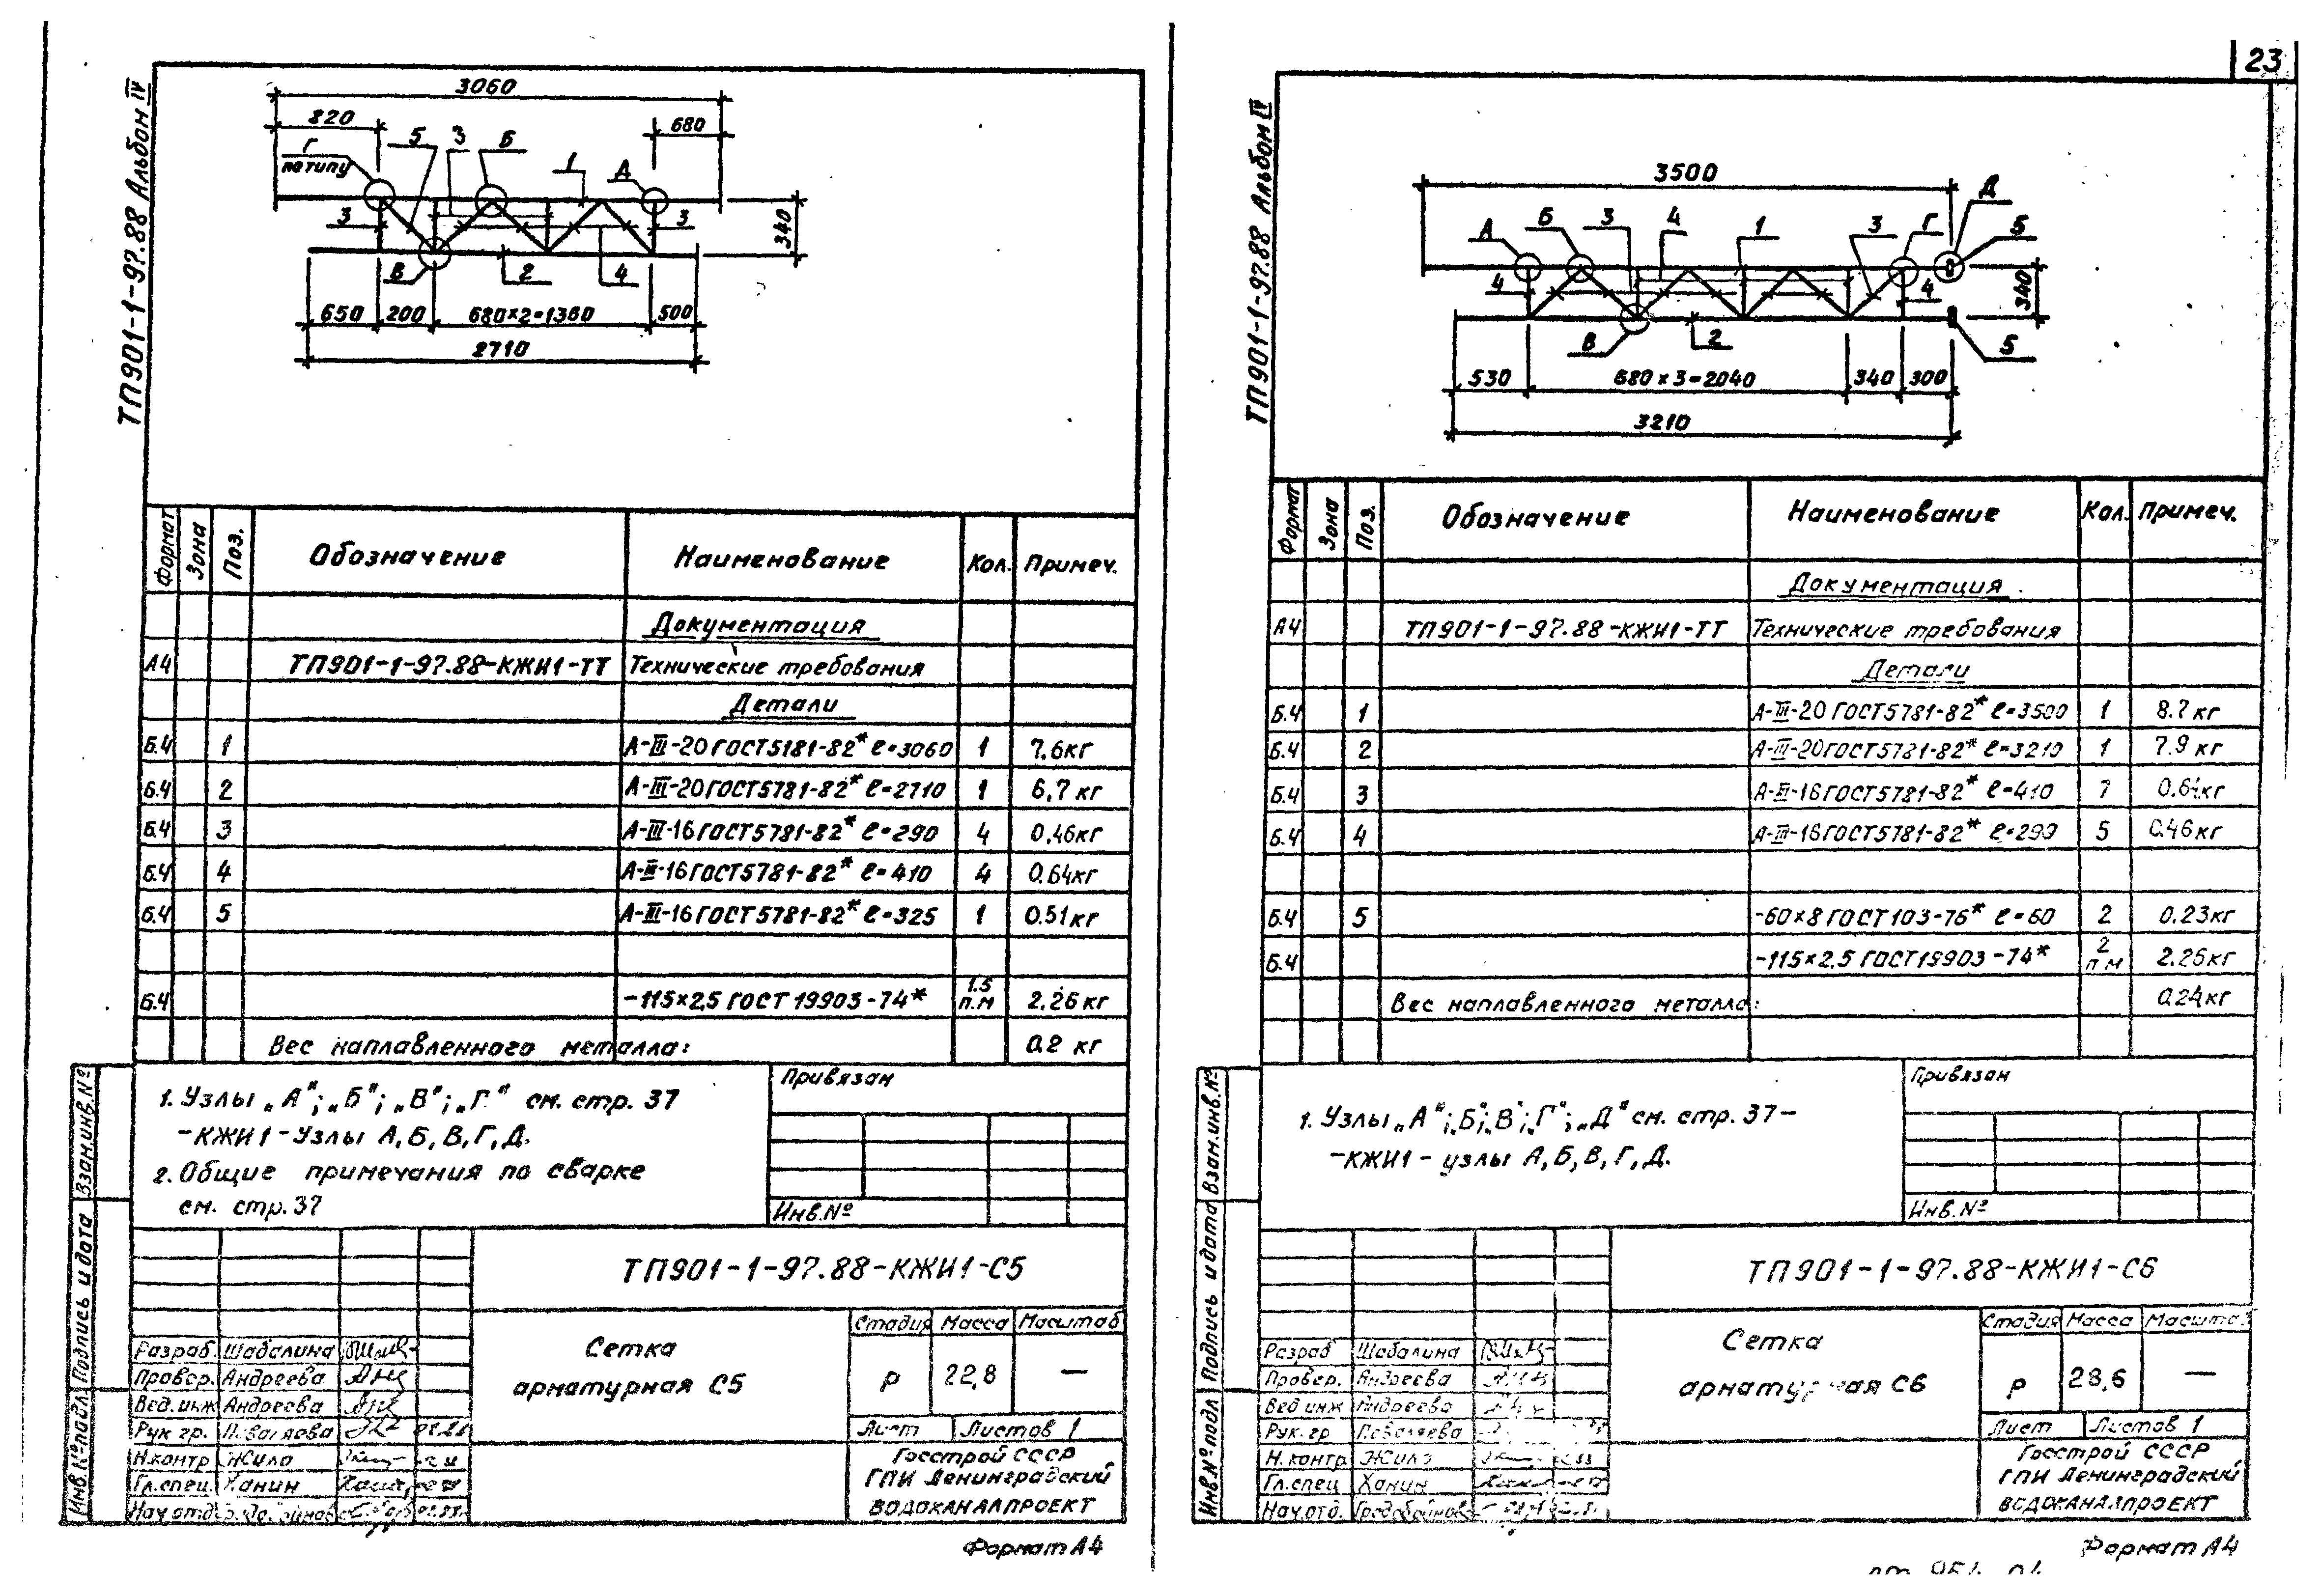 23
ТП901-1-97.88 Альбом IV
3060
820
680
Г
по типу
5
3
Б
1
А
3
3
340
В
2
4
650
200
680×2=1360
500
2710
Формат
Зона
Поз.
Обозначение
Наименование
Кол.
Примеч.
Документация
А4 ТП901-1-97.88-КЖИ1-ТТ Технические требования
Детали
Б.4 1 А-III-20 ГОСТ5181-82* ℓ=3060 1 7.6кг
Б.4 2 А-III-20 ГОСТ5781-82* ℓ=2710 1 6,7 кг
Б.4 3 А-III-16 ГОСТ5781-82* ℓ=290 4 0,46кг
Б.4 4 А-III-16 ГОСТ5781-82* ℓ=410 4 0.64кг
Б.4 5 А-III-16 ГОСТ5781-82* ℓ=325 1 0.51кг
Б.4 -115×2,5 ГОСТ 19903-74* 1.5 п.м 2.26 кг
Вес наплавленного металла: 0.2 кг
1. Узлы „А"; „Б"; „В"; „Г" см. стр. 37
-КЖИ1-Узлы А, Б, В, Г, Д.
2. Общие примечания по сварке
см. стр. 37
Привязан
Инв.№
Взам.инв.№
Подпись и дата
Инв.№подл
ТП901-1-97.88-КЖИ1-С5
Сетка
арматурная С5
Стадия Масса Масштаб
Р 22,8 —
Лист Листов 1
Госстрой СССР
ГПИ Ленинградский
ВОДОКАНАЛПРОЕКТ
Разраб. Шабалина
Провер. Андреева
Вед.инж Андреева
Рук гр. Поваляева
Н.контр Жило
Гл.спец. Ханин
Нач отд
Формат А4
ТП901-1-97.88 Альбом IV
3500
А
Б
3
4
1
3
Г
Д
5
4
4
340
В
2
5
530
680×3=2040
340
300
3210
Формат
Зона
Поз.
Обозначение
Наименование
Кол.
Примеч.
Документация
А4 ТП901-1-97.88-КЖИ1-ТТ Технические требования
Детали
Б.4 1 А-III-20 ГОСТ5781-82* ℓ=3500 1 8.7 кг
Б.4 2 А-III-20ГОСТ5781-82* ℓ=3210 1 7.9 кг
Б.4 3 А-III-16ГОСТ5781-82* ℓ=410 7 0.64кг
Б.4 4 А-III-16ГОСТ5781-82* ℓ=290 5 0.46кг
Б.4 5 -60×8 ГОСТ103-76* ℓ=60 2 0.23кг
Б.4 -115×2,5 ГОСТ19903-74* 2 п.м 2.26кг
Вес наплавленного металла: 0.24кг
1. Узлы „А"; „Б"; „В"; „Г"; „Д" см. стр. 37-
-КЖИ1- узлы А, Б, В, Г, Д.
Привязан
Инв.№
Взам.инв.№
Подпись и дата
Инв.№подл
ТП901-1-97.88-КЖИ1-С6
Сетка
арматурная С6
Стадия Масса Масштаб
Р 28,6 —
Лист Листов 1
Госстрой СССР
ГПИ Ленинградский
ВОДОКАНАЛПРОЕКТ
Разраб Шабалина
Провер. Андреева
Вед инж Андреева
Рук. гр Поваляева
Н.контр Жило
Гл.спец Ханин
Нач.отд.
Формат А4